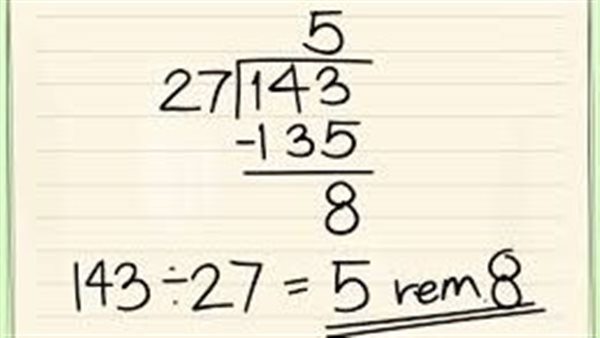 5
27 143
-135
8
143÷27 = 5 rem. 8